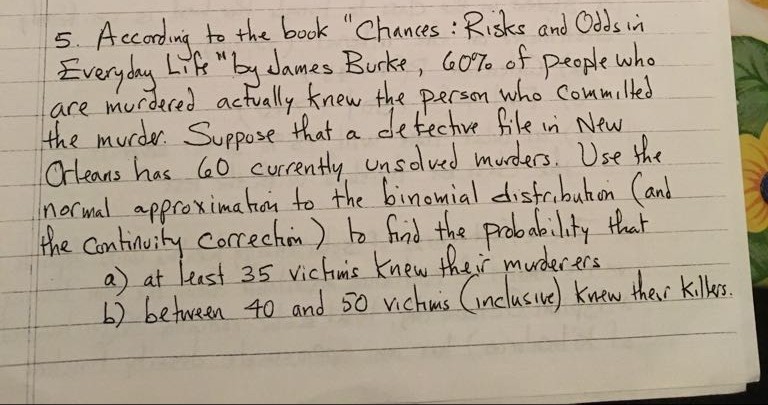 5. According to the book "Chances : Risks and Odds in
Everyday Life" by James Burke, 60% of people who
are murdered actually knew the person who committed
the murder. Suppose that a detective file in New
Orleans has 60 currently unsolved murders. Use the
normal approximation to the binomial distribution (and
the continuity correction) to find the probability that
a) at least 35 victims knew their murderers
b) between 40 and 50 victims (inclusive) knew their killers.